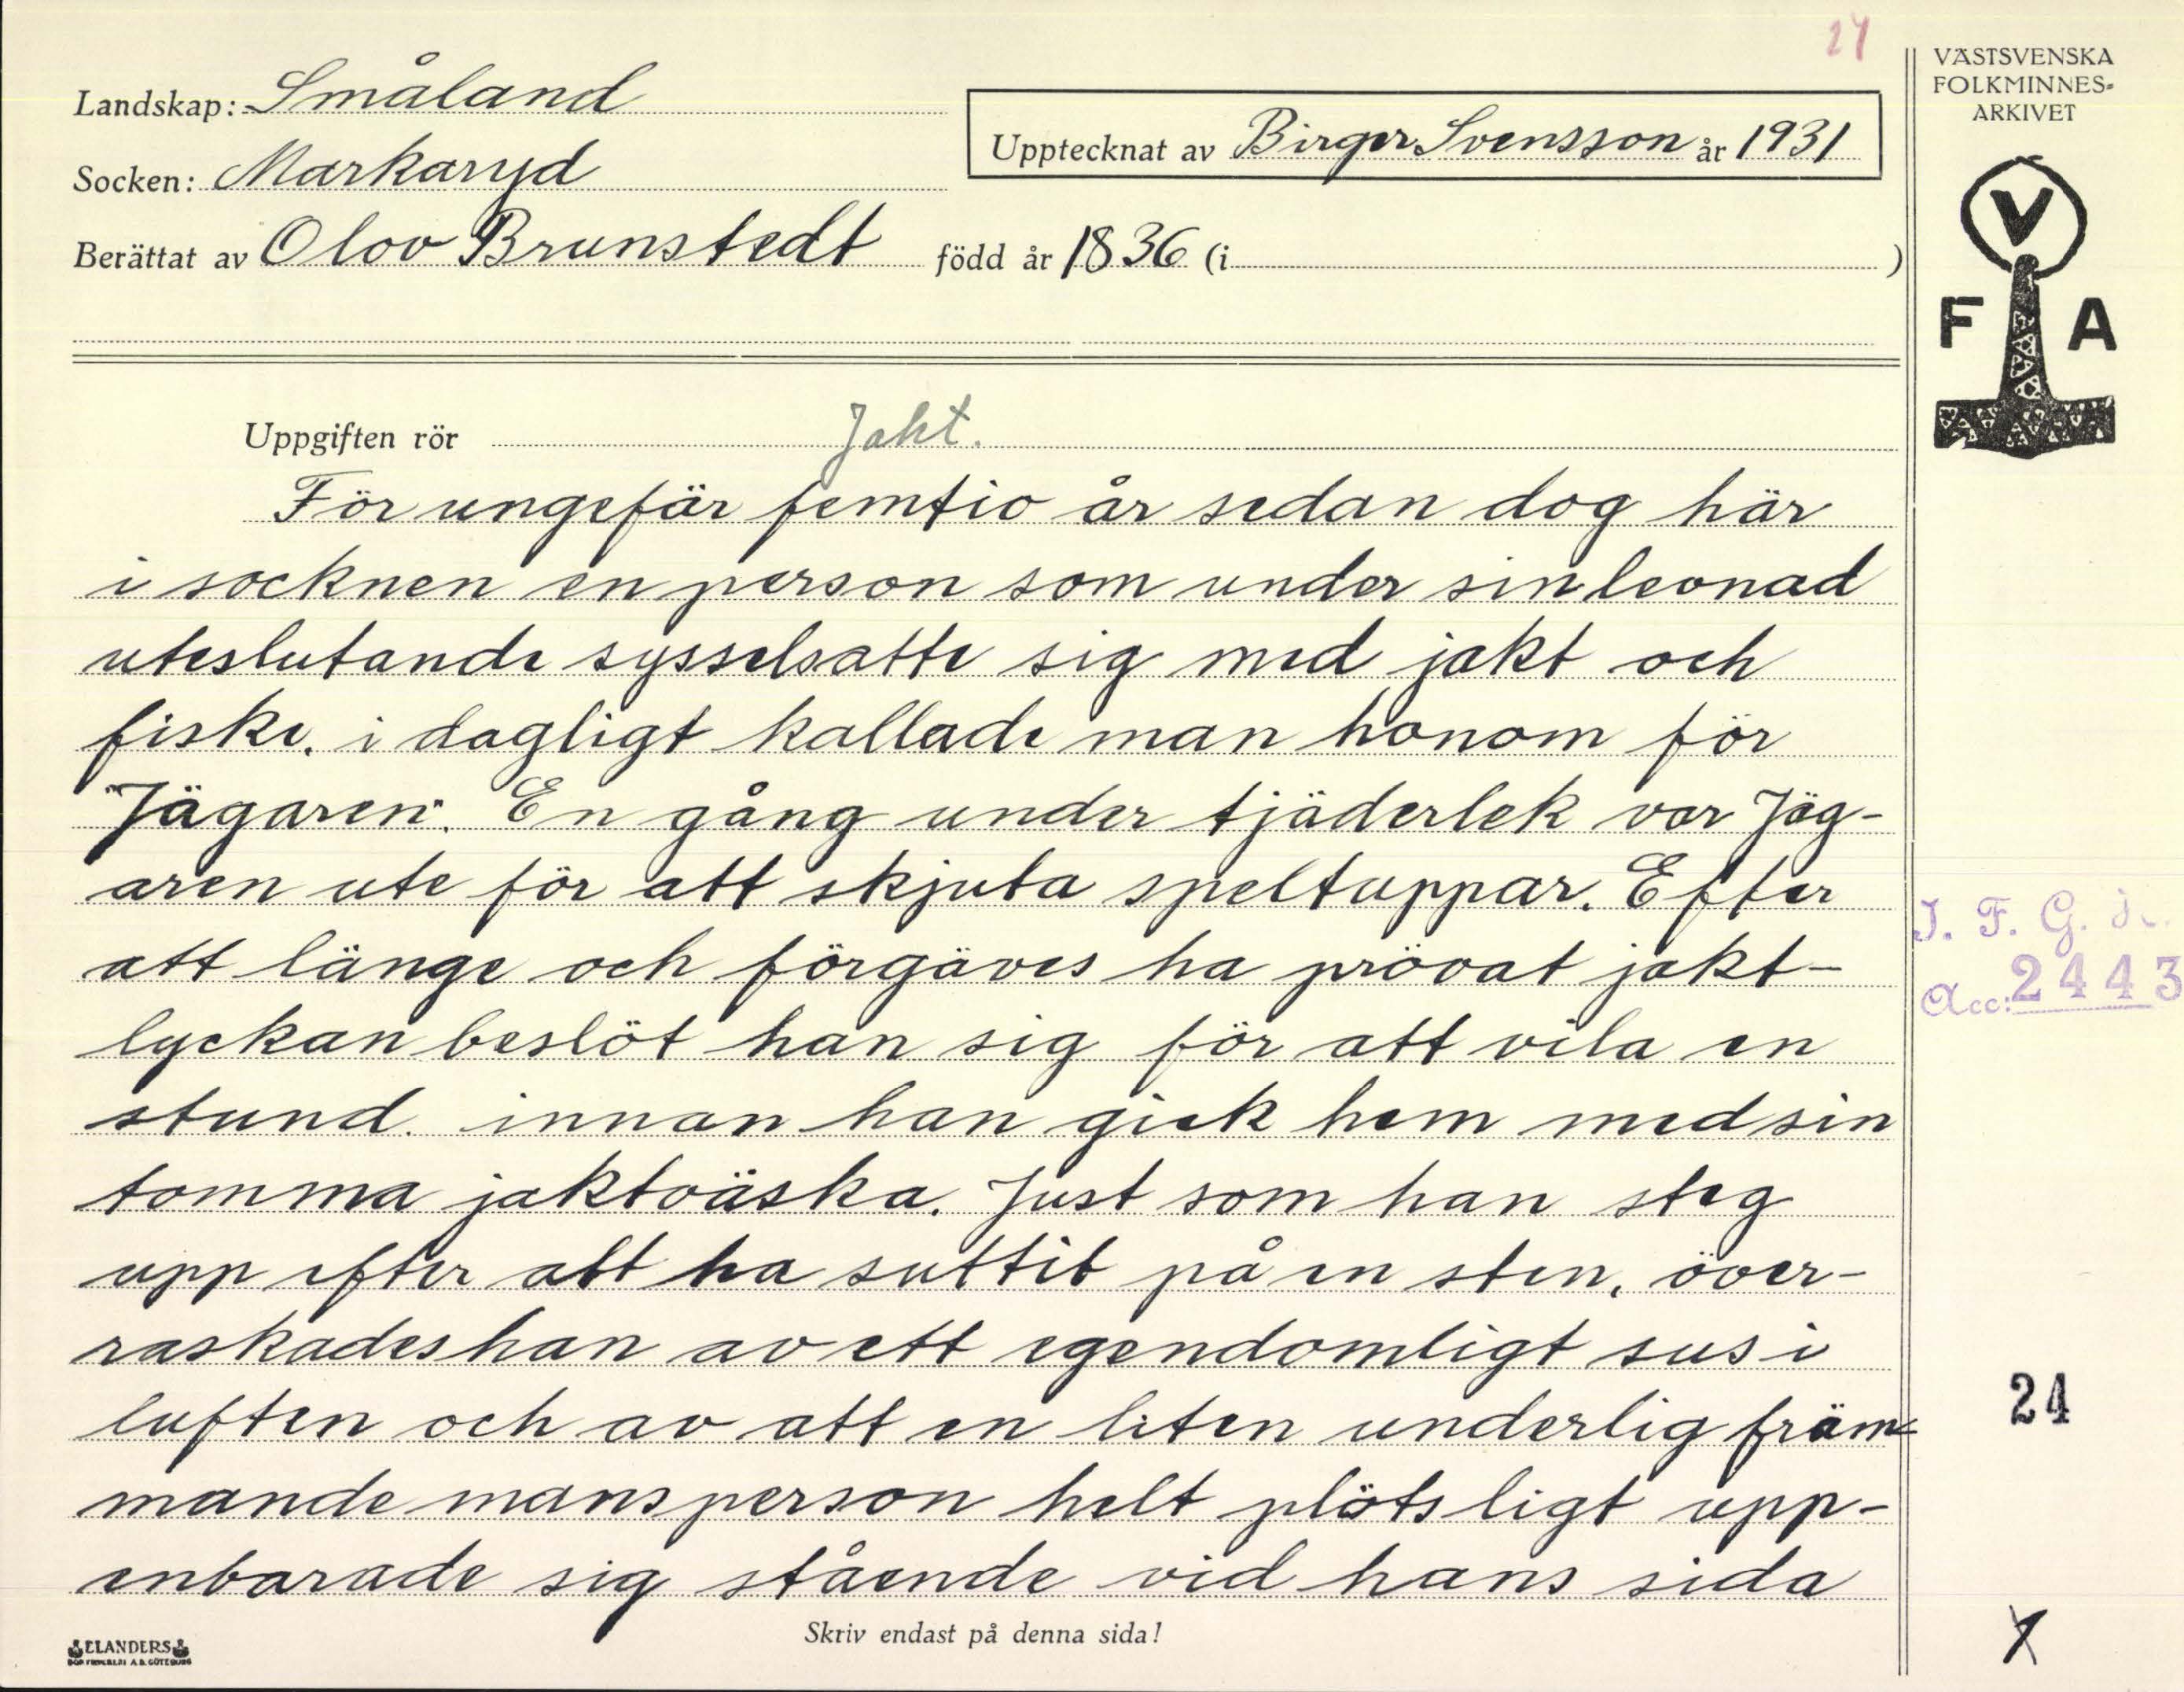 24
VÄSTSVENSKA
FOLKMINNES-
ARKIVET
Landskap: Småland
Upptecknat av Birger Svensson år 1931
Socken: Markaryd
Berättat av Olov Brunstedt född år 1836 (i )
V
F A
Uppgiften rör Jakt.
För ungefär femtio år sedan dog här
i socknen en person som under sin levnad
uteslutande sysselsatte sig med jakt och
fiske. i dagligt kallade man honom för
"Jägaren". En gång under tjäderlek var Jäg-
aren ute för att skjuta speltuppar. Efter
att länge och förgäves ha prövat jakt-
lyckan beslöt han sig för att vila en
stund. innan han gick hem med sin
tomma jaktväska. Just som han steg
upp efter att ha suttit på en sten, över-
raskades han av ett egendomligt sus i
luften och av att en liten underlig främ-
mande mansperson helt plötsligt upp-
enbarade sig stående vid hans sida
I. F. G. 
Acc: 2443
24
Skriv endast på denna sida!
ELANDERS
X